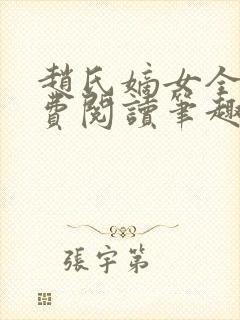 趙氏嫡女全
費閱讀筆趣
張宇第